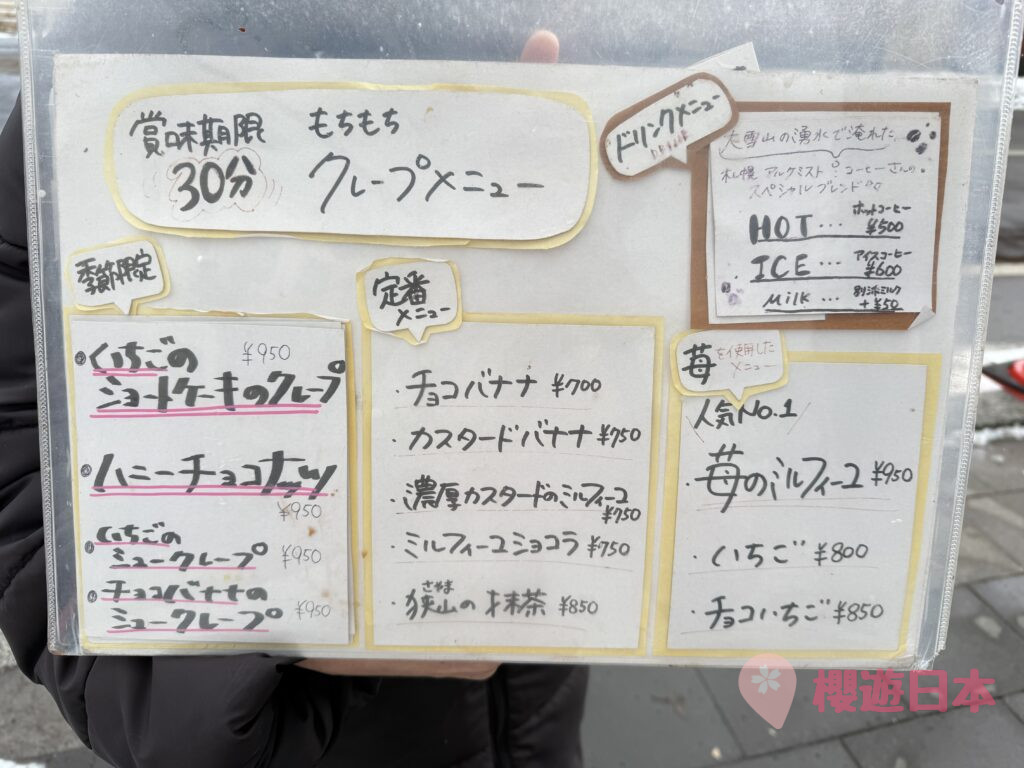 賞味期限
30分
もちもち
クレープメニュー
ドリンクメニュー
大雪山の湧水で淹れた
札幌アルケミストコーヒーさんの
スペシャルブレンド
HOT… ホットコーヒー ¥500
ICE… アイスコーヒー ¥600
Milk… 別添ミルク +¥50
季節限定
・いちごの ¥950
ショートケーキのクレープ
・ハニーチョコナッツ
¥950
・いちごの
ミュークレープ ¥950
・チョコバナナの
ミュークレープ ¥950
定番
メニュー
・チョコバナナ ¥700
・カスタードバナナ ¥750
・濃厚カスタードのミルフィーユ
¥750
・ミルフィーユショコラ ¥750
さやま
・狭山の抹茶 ¥850
苺を使用した
メニュー
人気NO.1
・苺のミルフィーユ ¥950
・いちご ¥800
・チョコいちご ¥850
櫻遊日本